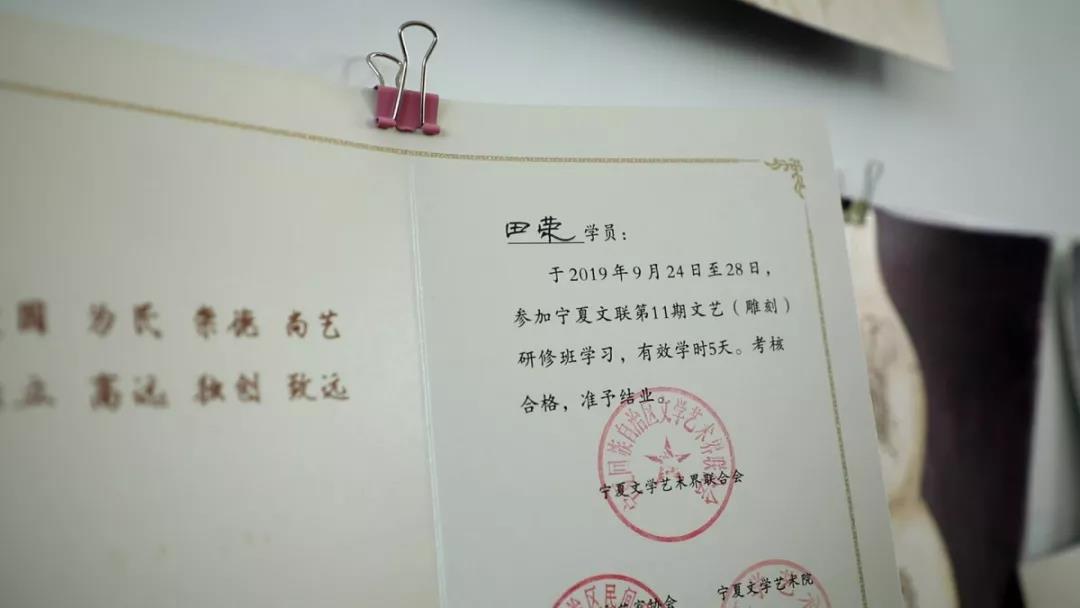 为民 崇德 尚艺
高远 独创 致远
田荣 学员：
于2019年9月24日至28日，
参加宁夏文联第11期文艺（雕刻）
研修班学习，有效学时5天。考核
合格，准予结业。
宁夏回族自治区文学艺术界联合会
宁夏文学艺术界联合会
宁夏文学艺术院